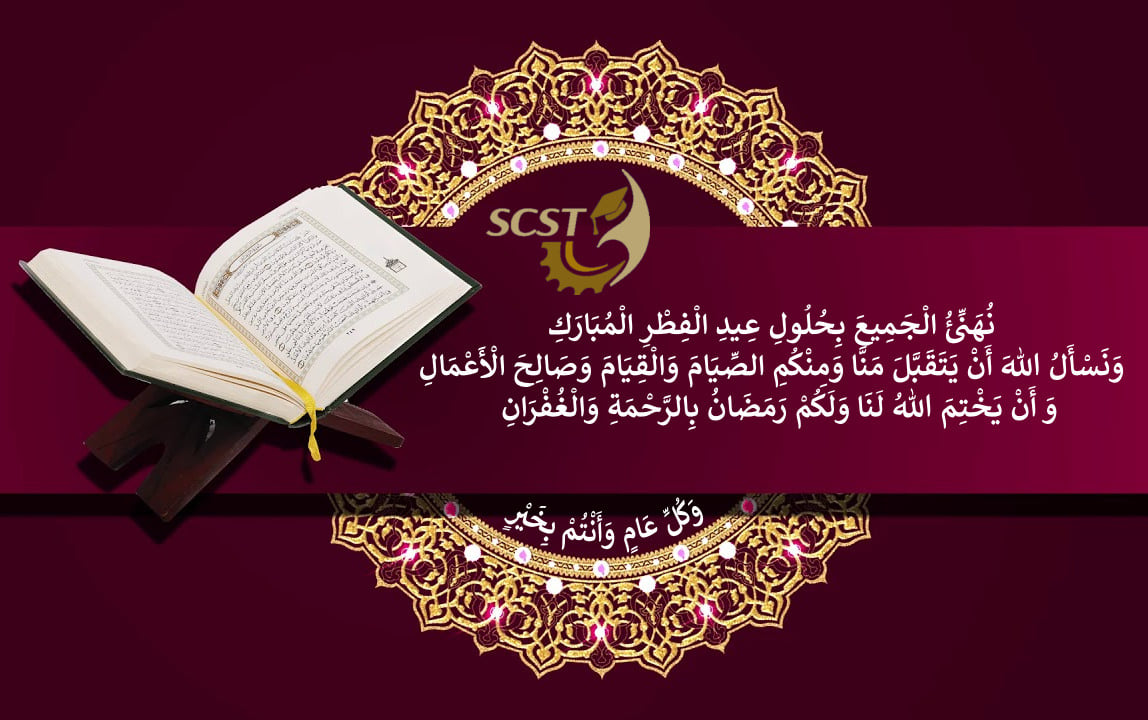 SCST
نُهَنِّئُ الْجَمِيعَ بِحُلُولِ عِيدِ الْفِطْرِ الْمُبَارَكِ
وَنَسْأَلُ اللهَ أَنْ يَتَقَبَّلَ مَنَّا وَمِنْكُمِ الصِّيَامَ وَالْقِيَامَ وَصَالِحَ الْأَعْمَالِ
وَ أَنْ يَخْتِمَ اللهُ لَنَا وَلَكُمْ رَمَضَانُ بِالرَّحْمَةِ وَالْغُفْرَانِ
وَكُلِّ عَامٍ وَأَنْتُمْ بِخَيْرٍ